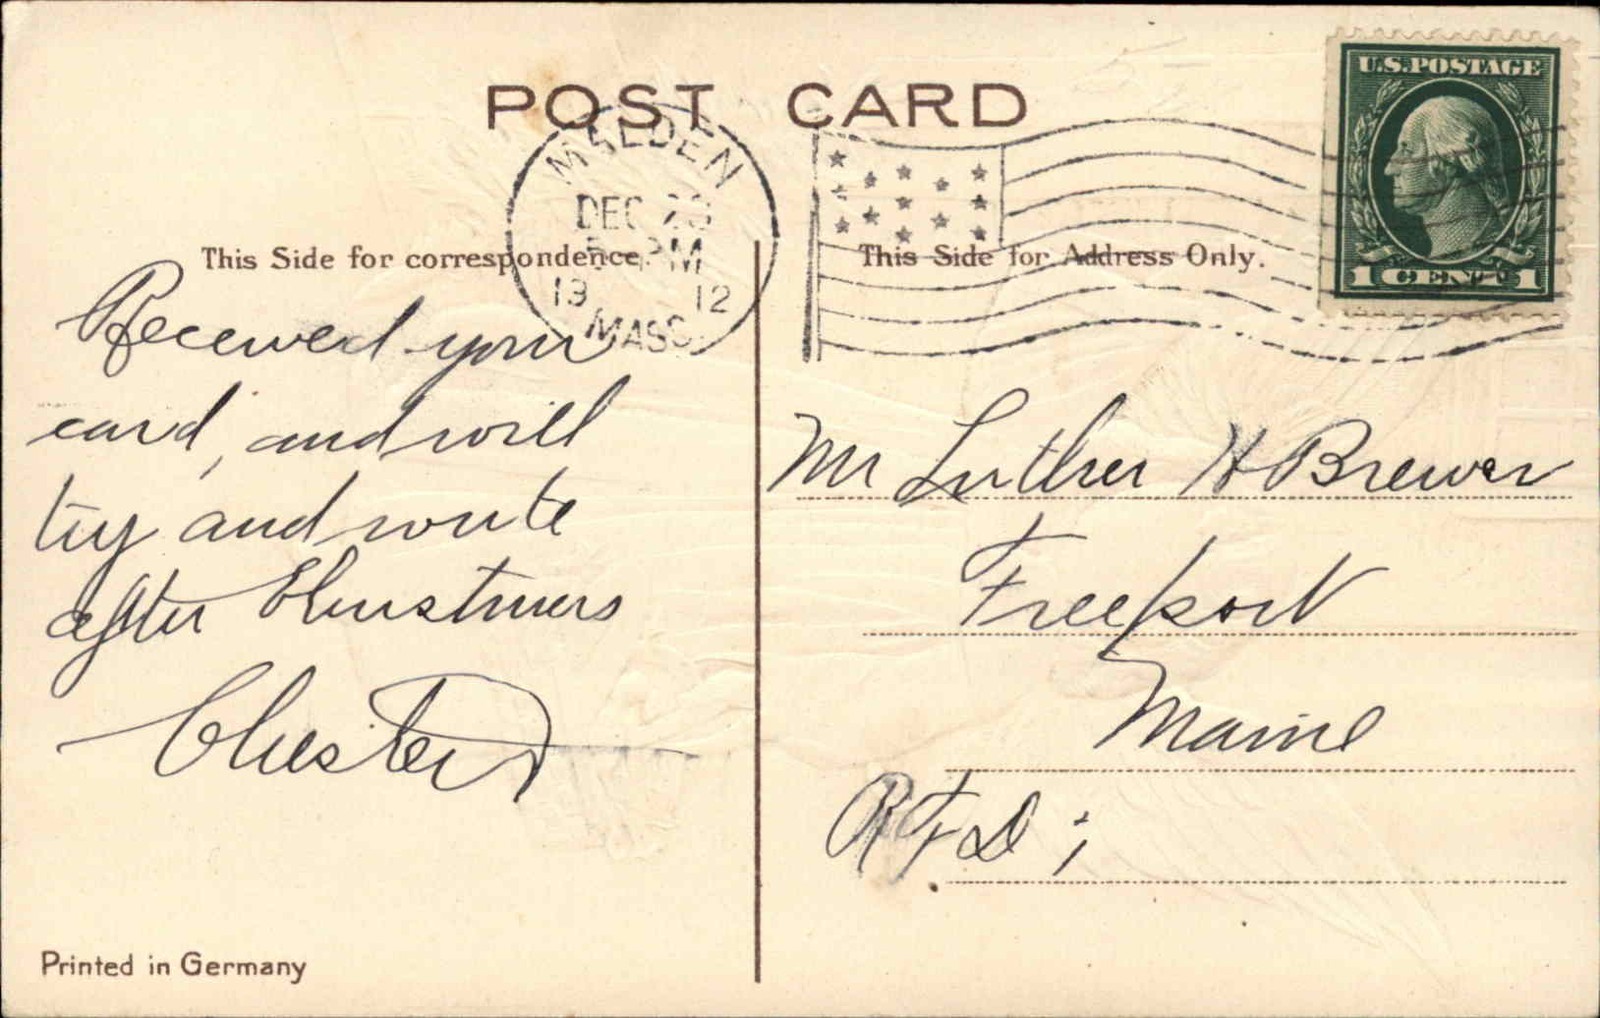 POST CARD
MALDEN
DEC 23
5 PM
19 12
MASS.
U.S. POSTAGE
1 CENT 1
This Side for correspondence.
This Side for Address Only.
Received your
card, and will
try and write
after Christmas
Chester
Mr Luther H Brewer
Freeport
Maine
R F D 1
Printed in Germany